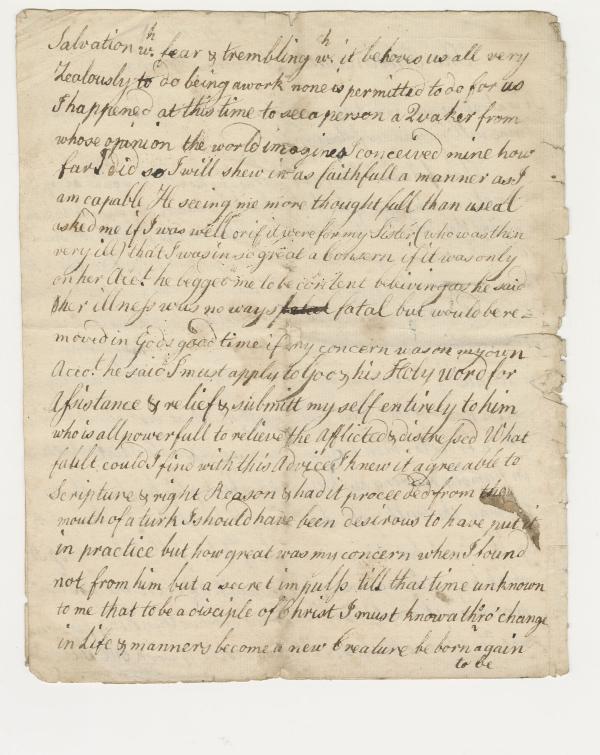 Salvation wth. fear & trembling wh. it behoves us all very
Zealously to do being a work none is permitted to do for us
I happened at this time to see a person a Quaker from
whose opinion the world imagines I conceived mine how
far I did so I will shew in as faithfull a manner as I
am capable He seeing me more thoughtfull than useal
asked me if I was well or if it were for my Sister (who was then
very ill) that I was in so great a Consern if it was only
on her Acct. he begged me to be content beleiving as he said
her illness was no ways fatal fatal but would be re=
moved in Gods good time if my concern was on my own
Accot. he said I must apply to God & his Holy word for
Assistance & relief & submitt my self entirely to him
who is all powerfull to relieve the Afflicted & distressed What
fault could I find with this Advice I knew it agreeable to
Scripture & right Reason & had it proceeded from the
mouth of a turk I should have been desirous to have put it
in practice but how great was my concern when I found
not from him but a secret impulss till that time unknown
to me that to be a disciple of Christ I must know a thro' change
in Life & manners become a new Creature be born again
to be